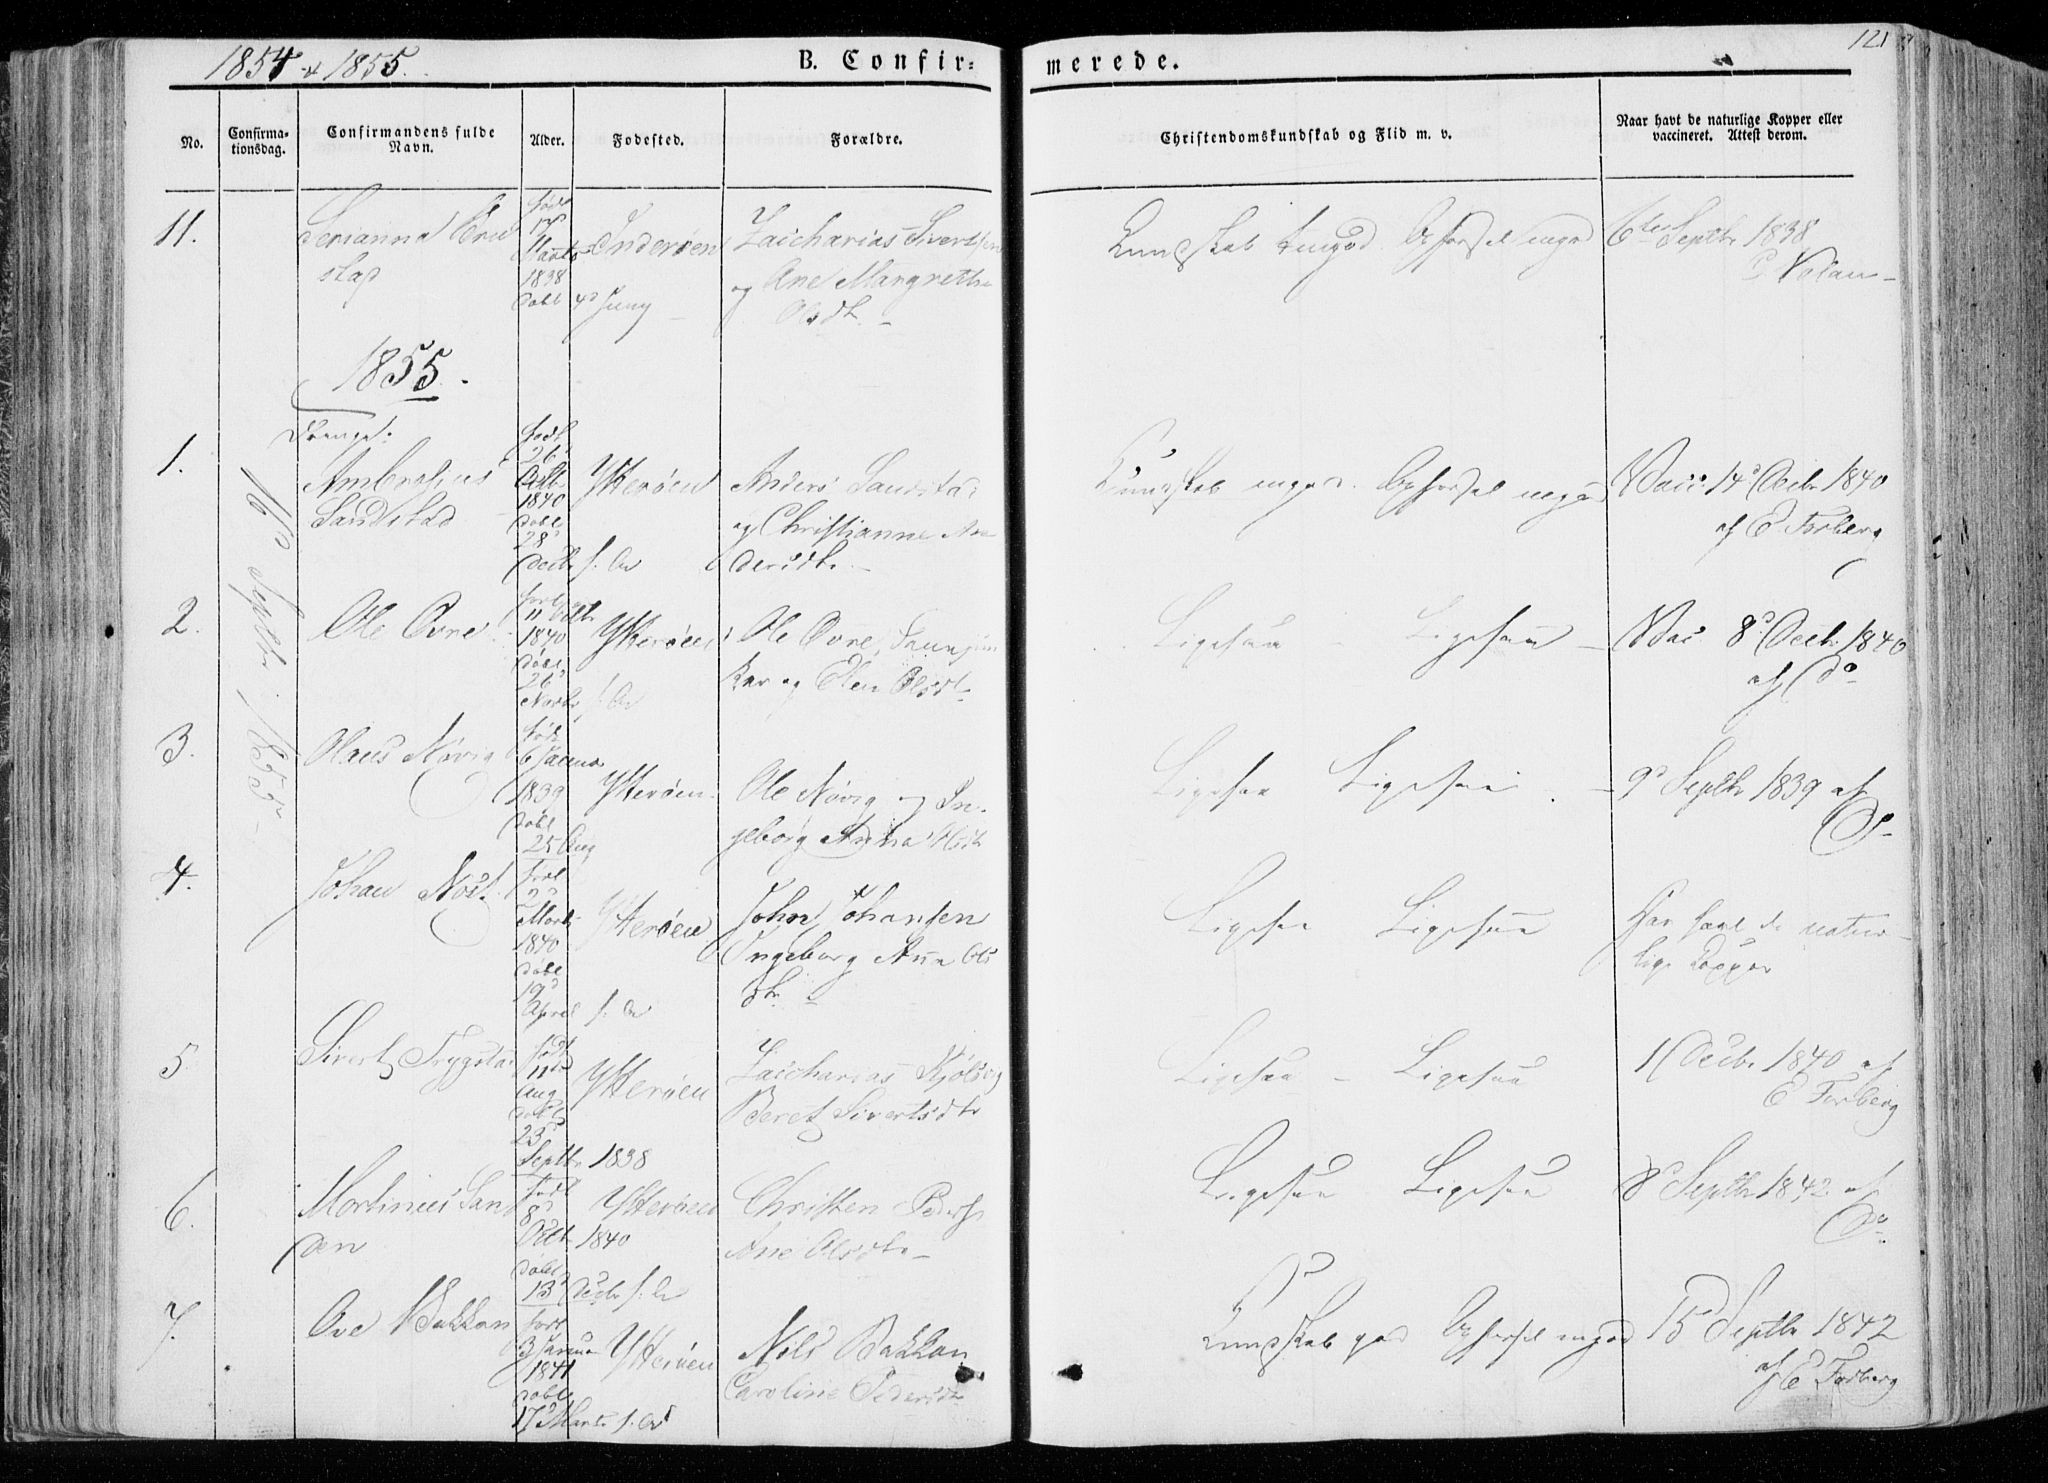 1854 & 1855.
B. Confirmerede.
121
No.
Confirmationsdag.
Confirmandens fulde Navn.
Alder.
Fødested.
Forældre.
Christendomskundskab og Flid m. v.
Naar havt de naturlige Kopper eller vaccineret. Attest derom.
11.
Serianna
født 17 Marts 1838 døbt 4d Juny
Inderøen
Zaccharias Sivertsen
og Ane Margrethe
Olsdtr.
Kundskab temgod Opførsel mgod
6te Septbr 1838
1855.
Drenge:
16d Septbr. 1855
1.
Ambrosius
Sandstad
født 26d Octb 1840 døbt 28d Decbr s. Aar
Ytterøen
Anders Sandstad
og Christianne An
dersdtr.
Kundskab mgod. Opførsel mgod
Vacc. 14d Decbr 1840
af E. Forberg
2.
Ole Øvre
11 Octbr 1840 døbt 26d Novbr s. Aar
Ytterøen
Ole Øvre,
og Elen Olsdtr
Ligesaa - Ligesaa -
Vac 8d Decbr. 1840
af Do
3.
Olaus Nøvig
født 6 Janua 1839 døbt 25 Aug
Ytterøen
Ole Nøvig og In-
geborg Anna Olsdtr
Ligesaa Ligesaa
9d Septbr 1839 af
Do
4.
Johan Nøst
Marts 1840 døbt 19d April s. Aar
Ytterøen
John Johansen
Ingeborg Anna Ols
dtr.
Ligesaa Ligesaa
Har havt de natur-
lige Kopper
5.
Sivert Trygstad
født 11te Aug døbt 23d Septbr 1838
Ytterøen
Zaccharias Kjølsvig
Beret Sivertsdtr
Ligesaa - Ligesaa
1 Decbr. 1840 af
E Forberg
6.
Martinus San
den
født 8d Octbr 1840 døbt 13d Decbr s. Aar
Ytterøen
Christen Peders
Ane Olsdtr
Ligesaa Ligesaa
8d Septbr 1842 af
Do.
7.
Ove Bakkan
født 3 Janua 1841 døbt 17d Marts s. Aar
Ytterøen
Nils Bakkan
Caroline Pedersdtr
Kundskab god Opførsel mgod
15d Septbr 1842
af E Forberg